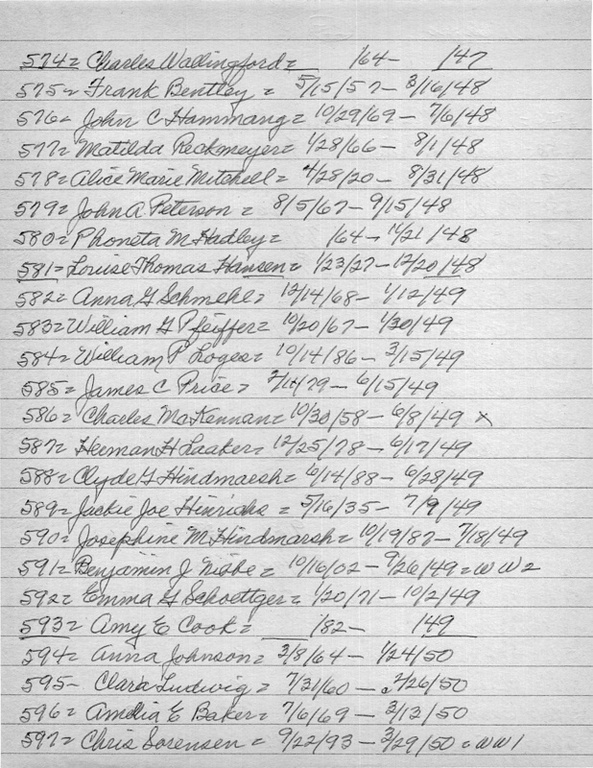 574= Charles Wallingford= /64- /47
575= Frank Bentley = 5/15/57- 3/16/48
576= John C Hammang= 10/29/69- 7/6/48
577= Matilda Reckmeyer= 1/28/66- 8/1/48
578= Alice Marie Mitchell= 4/28/20- 8/31/48
579= John A Peterson = 8/5/67- 9/15/48
580= Phoneta M Hadley= /64- 11/21/48
581= Louise Thomas Hansen= 1/23/27- 12/20/48
582= Anna G Schmehl= 12/14/68- 1/12/49
583= William G Pfeiffer= 10/20/67- 1/30/49
584= William P Loges= 10/14/86- 3/15/49
585= James C Price= 2/14/79- 6/15/49
586= Charles McKennan= 10/30/58- 6/8/49 x
587= Herman H Laaker= 12/25/78- 6/17/49
588= Clyde G Hindmarsh= 6/14/88- 6/28/49
589= Jackie Joe Hinrichs = 5/16/35- 7/9/49
590= Josephine M Hindmarsh= 10/19/87- 7/18/49
591= Benjamin J = 10/16/02- 9/26/49= WW2
592= Emma G Schoettger= 1/20/71- 10/2/49
593= Amy E Cook= /82- /49
594= Anna Johnson= 3/8/64- 1/24/50
595- Clara Ludwig= 7/31/60- 2/26/50
596= Amelia E Baker= 7/6/69- 3/13/50
597= Chris Sorensen = 9/22/93- 3/29/50= WW1